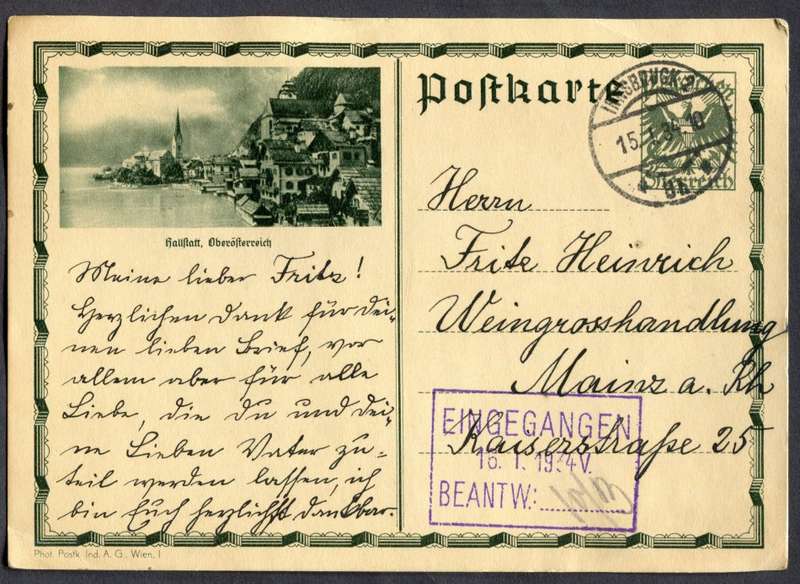 Postkarte
INNSBRUCK 2
15. I. 34 10
Österreich
Hallstatt, Oberösterreich
Meine lieber Fritz!
Herzlichen Dank für dei-
nen lieben Brief, vor
allem aber für alle
Liebe, die du und dei-
ne Lieben Vater zu-
teil werden lassen, ich
bin Euch herzlichst dankbar.
Herrn
Fritz Heinrich
Weingrosshandlung
Mainz a. Rh
Kaiserstraße 25
EINGEGANGEN
16. 1. 1934 V.
BEANTW:
Phot. Postk. Ind. A. G., Wien, I